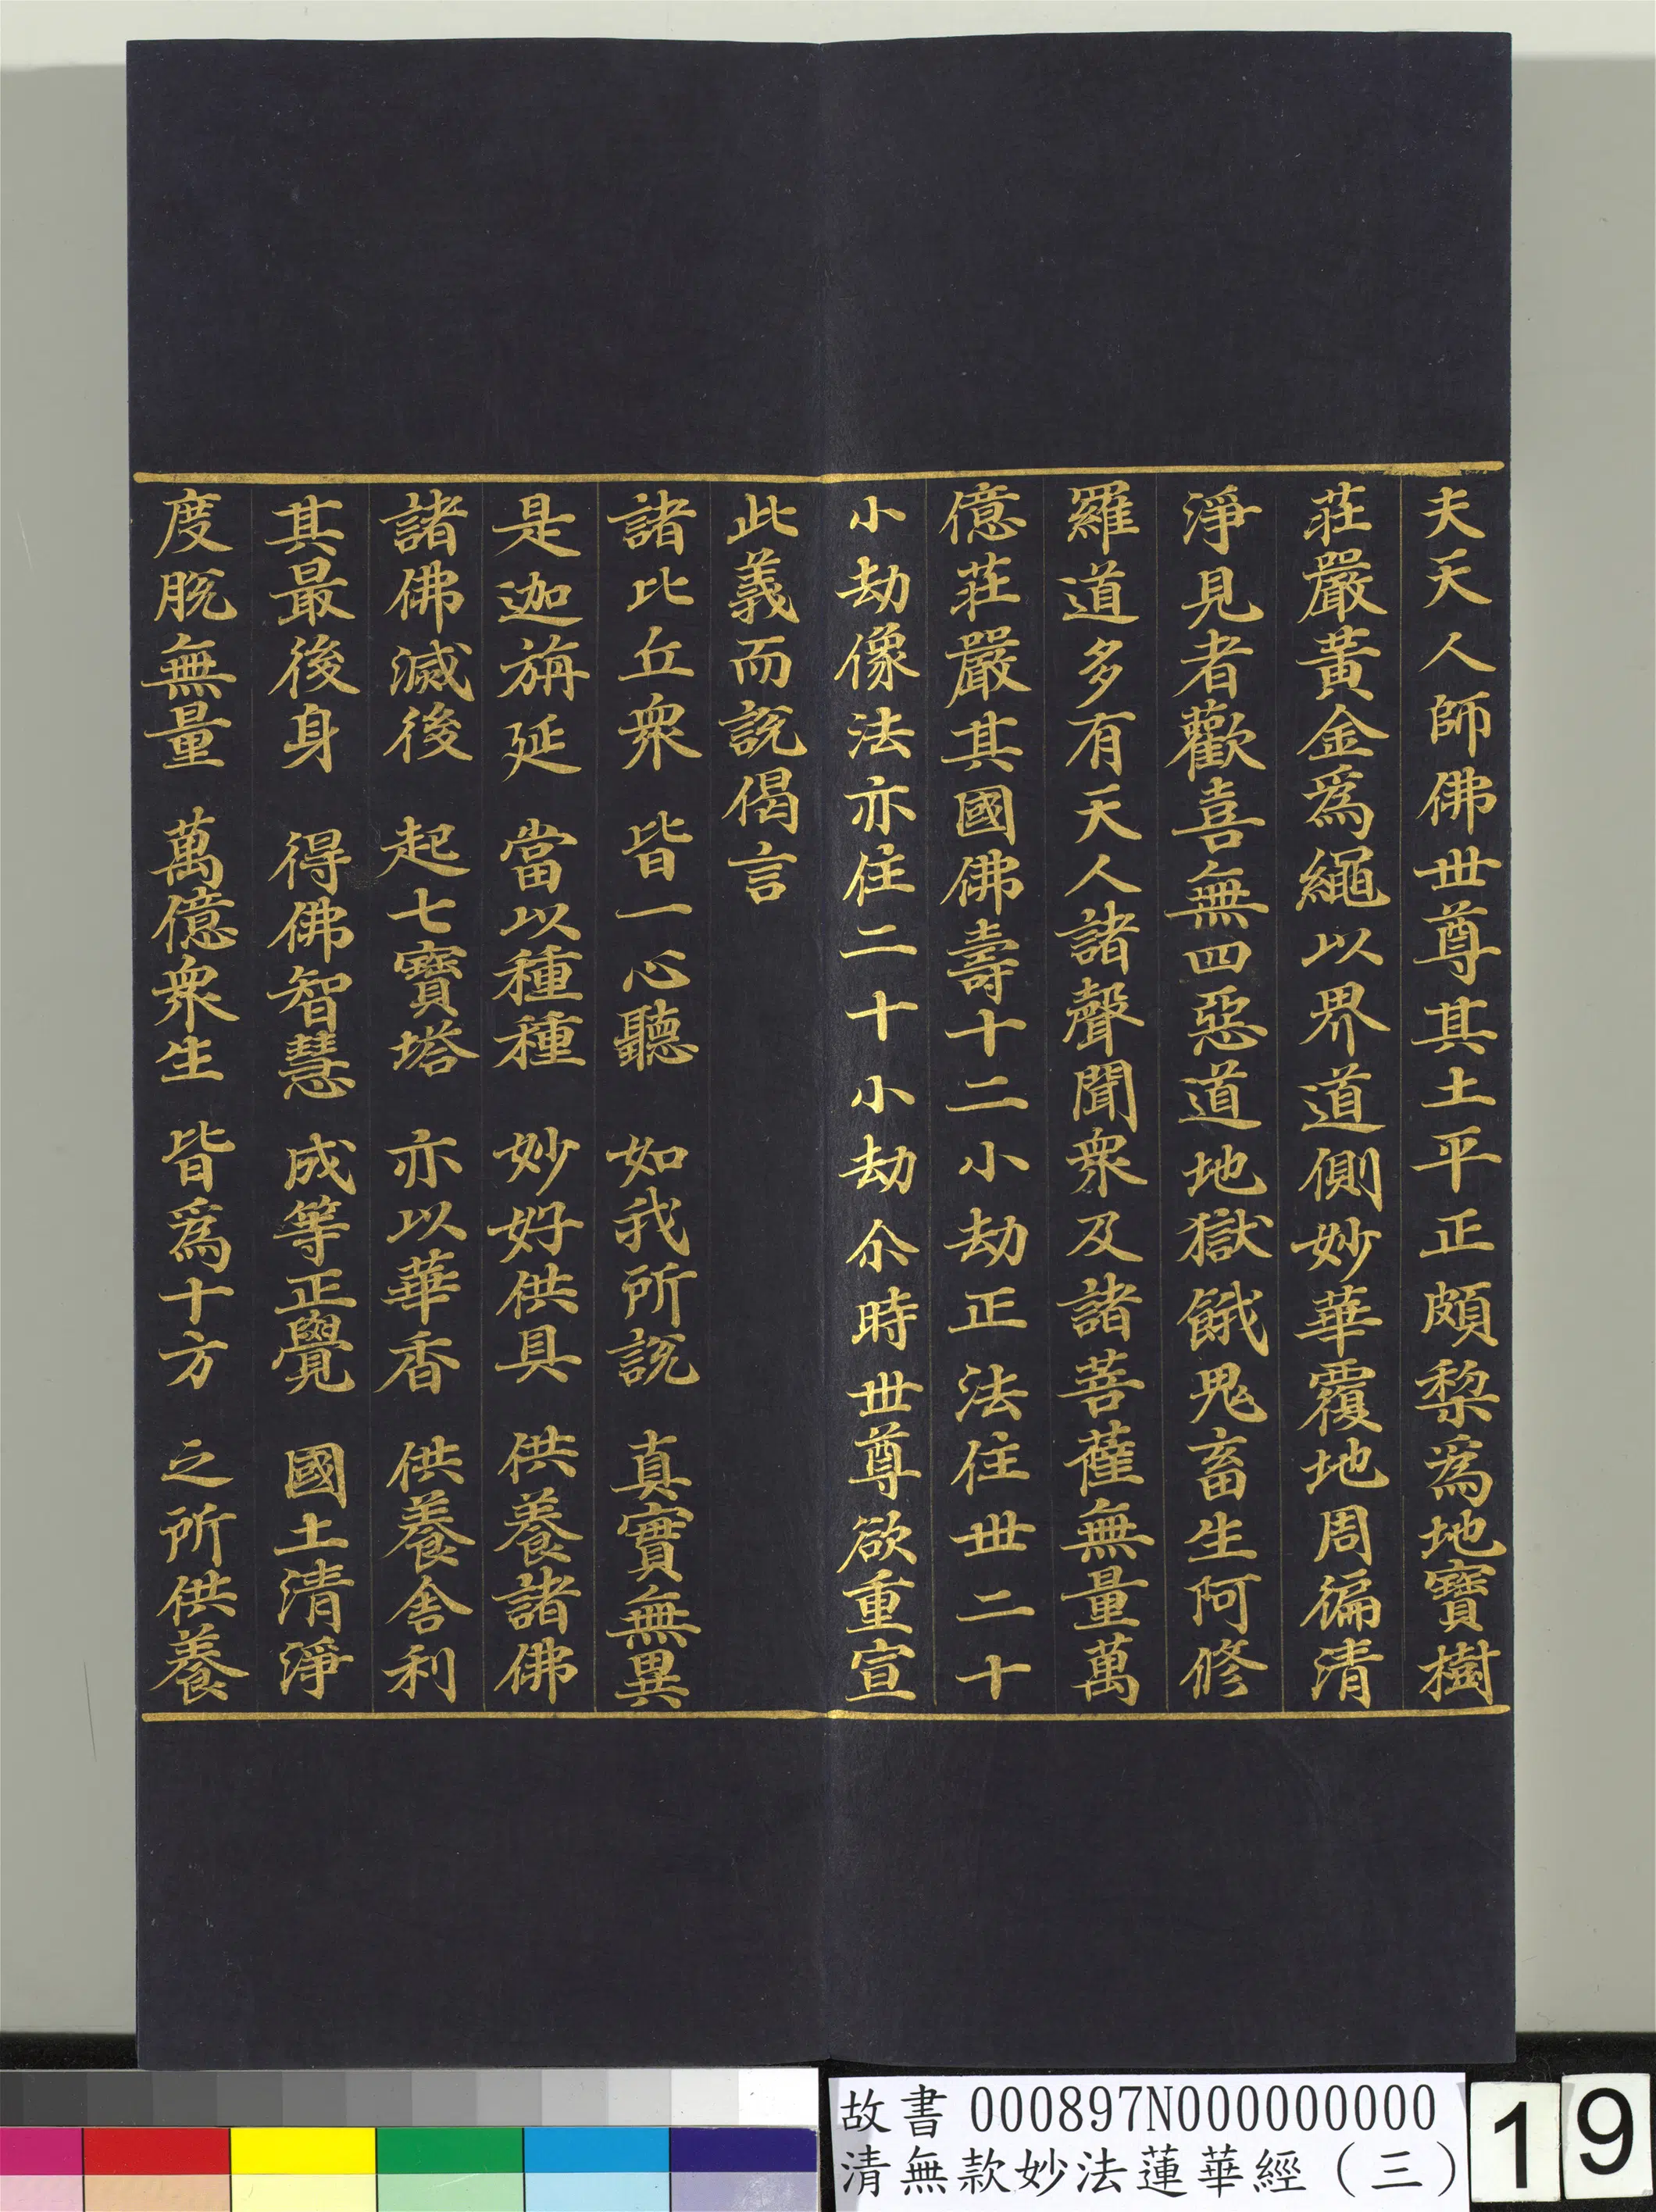 夫天人師佛世尊其土平正頗梨爲地寶樹
莊嚴黃金爲繩以界道側妙華覆地周徧清
淨見者歡喜無四惡道地獄餓鬼畜生阿修
羅道多有天人諸聲聞衆及諸菩薩無量萬
億莊嚴其國佛壽十二小劫正法住世二十
小劫像法亦住二十小劫尒時世尊欲重宣
此義而說偈言
諸比丘衆　皆一心聽　如我所說　真實無異
是迦旃延　當以種種　妙好供具　供養諸佛
諸佛滅後　起七寶塔　亦以華香　供養舍利
其最後身　得佛智慧　成等正覺　國土清淨
度脫無量　萬億衆生　皆爲十方　之所供養
故書 000897N000000000
清無款妙法蓮華經（三）
19